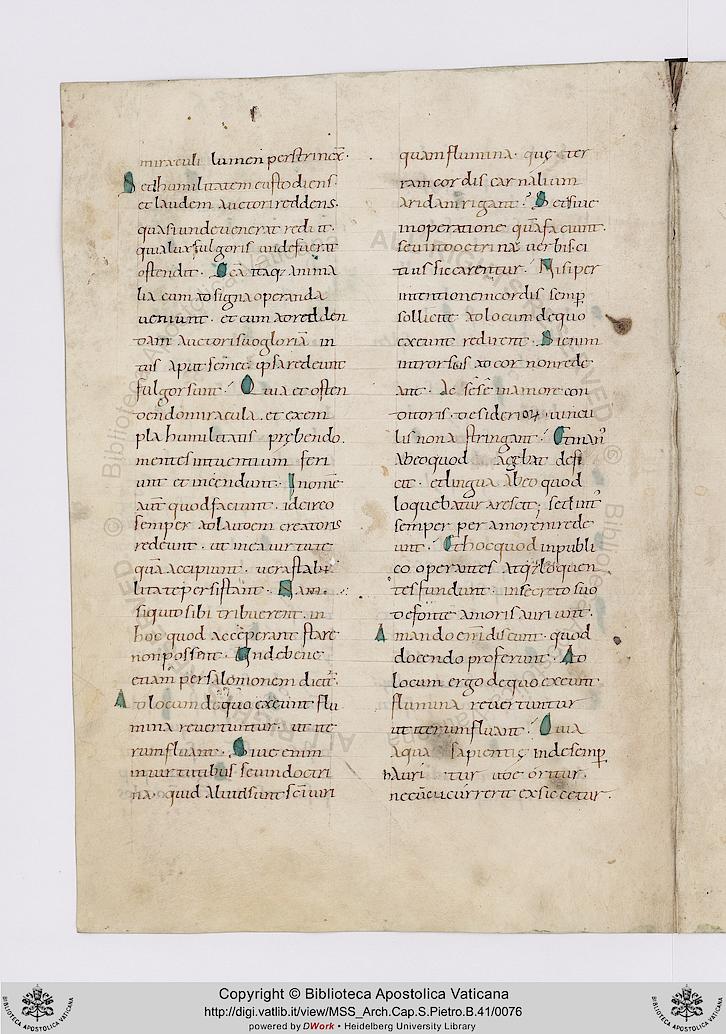 miraculi lumen perstrinex̄·
Set humilitatem custodiens·
et laudem auctori reddens·
quasi unde venerat rediit·
qualux fulgoris unde fuerat
ostendit· Scā itaq; anima
lia cum ad signa operanda
veniunt· et cum ad redden
dam auctori suo gloriā in
tus aput semet ipsa redeunt
fulgor sunt· Quia et osten
dendo miracula· et exem
pla humilitatis prębendo·
mentes intuentium feri
unt et incendunt· In om̄e
aut̄ quod faciunt· idcirco
semper ad laudem creatoris
redeunt· ut in ea virtute
quā accipiunt· vera stabi
litate persistant· Nam
si quid sibi tribuerent· in
hoc quod acceperant stare
non possent· Unde bene
etiam per salomonem dictū·
Ad locum de quo exeunt flu
mina revertuntur· ut ite
rum fluant· Sive enim
in virtutibus seu in doctri
na· quid aliud sunt sc̄i viri
quam flumina· quę ter
ram cordis carnalium
aridam rigant· Set sive
in operatione quā faciunt·
seu in doctrina verbis ci
tius siccarentur· Nisi per
intentionem cordis semp̄
sollicite ad locum de quo
exeunt redirent· Si enim
introrsus ad cor non rede
ant· ac sese in amore con
ditoris· desiderioꝝ vincu
lis non astringant· Et man'
ab eo quod agebat defi
cit· et lingua ab eo quod
loquebatur arescit; set int'
semper per amorem rede
unt· Et hoc quod in publi
co operantes atq; loquen
tes fundunt· in secreto suo
de fonte amoris auriunt·
Amando enī discunt· quod
docendo proferunt· Ad
locum ergo de quo exeunt
flumina revertuntur
ut iterum fluant· Quia
aqua sapientię inde semp̄
hauritur· unde oritur·
ne cū cucurrerit exsiccetur·
Copyright © Biblioteca Apostolica Vaticana
http://digi.vatlib.it/view/MSS_Arch.Cap.S.Pietro.B.41/0076
powered by DWork • Heidelberg University Library